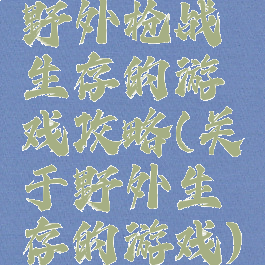 野外枪战
生存的游
戏攻略(关
于野外生
存的游戏)